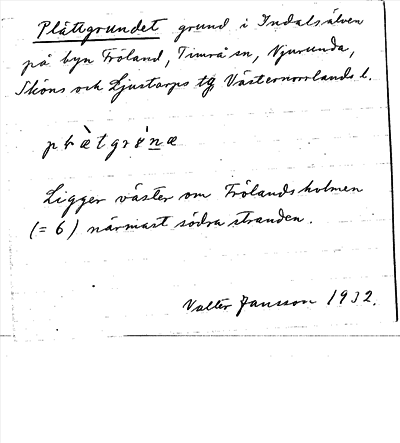 Plättgrundet grund i Indalsälven
på byn Fröland, Timrå sn, Njurunda,
Sköns och Ljustorps tg Västernorrlands l.
Ligger väster om Frölandsholmen
(= 6) närmast södra stranden.
Valter Jansson 1932.